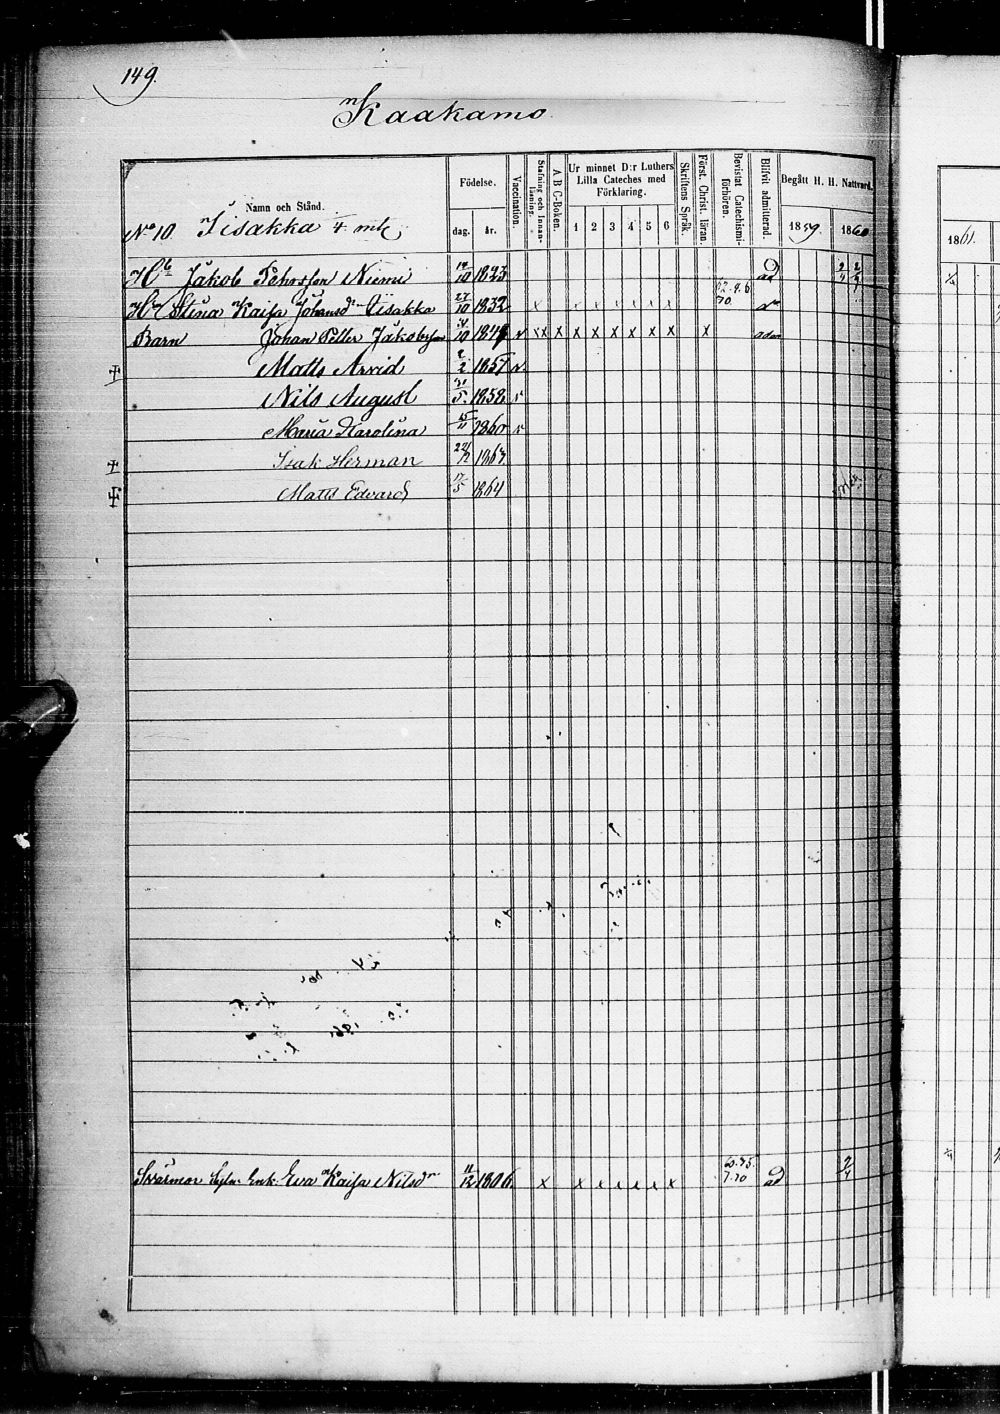 149.
Kaakamo
Namn och Stånd.
Födelse.
dag. år.
Vaccination.
Stafning och Innanläsning.
A B C-Boken.
Ur minnet D:r Luthers Lilla Cateches med Förklaring.
1 2 3 4 5 6
Skriftens Språk.
Först. Christ. läran.
Bevistat Catechismiförhören.
Blifvit admitterad.
Begått H. H. Nattvard.
1859. 1860
1861.
No 10. Iisakka 4 mtl
Jakob Niemi 10 1823 ad 2/4
Stina Kaisa Johansdr Iisakka 27/10 1832 x x x x x x x
Barn Johan Petter Jakobsson 10 184 v x x x x x x x x x x
Matts Arvid 2/2 1857 v
Nils August 31/5 1858 v
Maria Karolina 15/11 1860 v
Isak Herman 22/12 186
Matts Edvard 17/5 1864
Enk. Eva Kaisa Nilsdr 11/12 1806 x x x x x x x 60.75. 7.70 ad 2/4